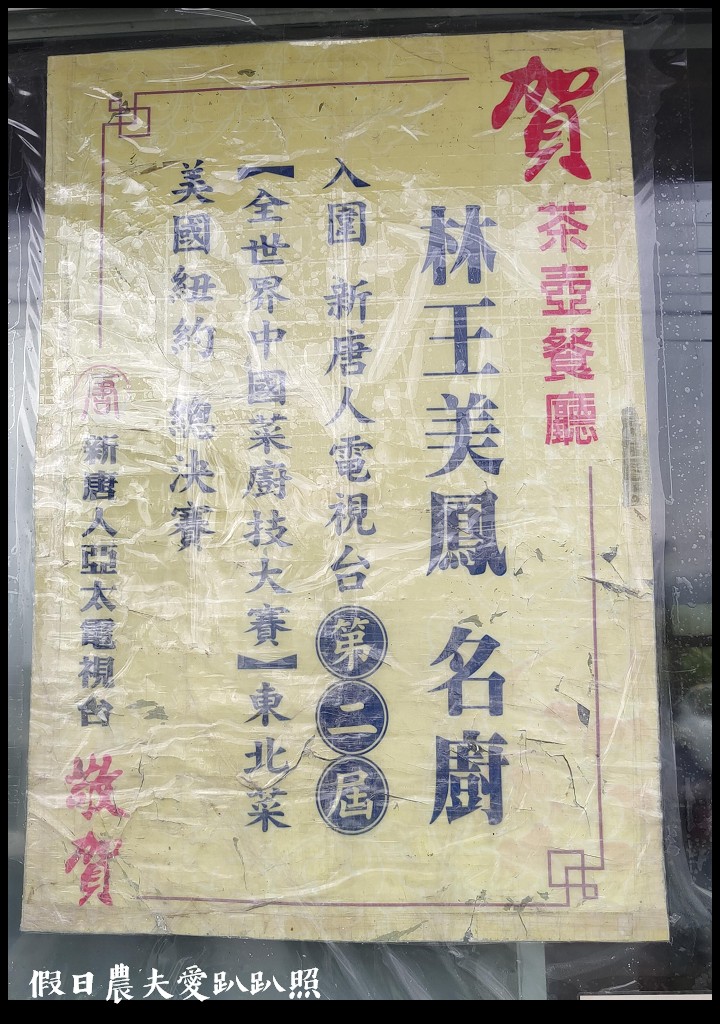 賀
茶壺餐廳
林王美鳳 名廚
入圍 新唐人電視台 第二屆
【全世界中國菜廚技大賽】東北菜
美國紐約 總決賽
新唐人亞太電視台
敬賀
假日農夫愛趴趴照